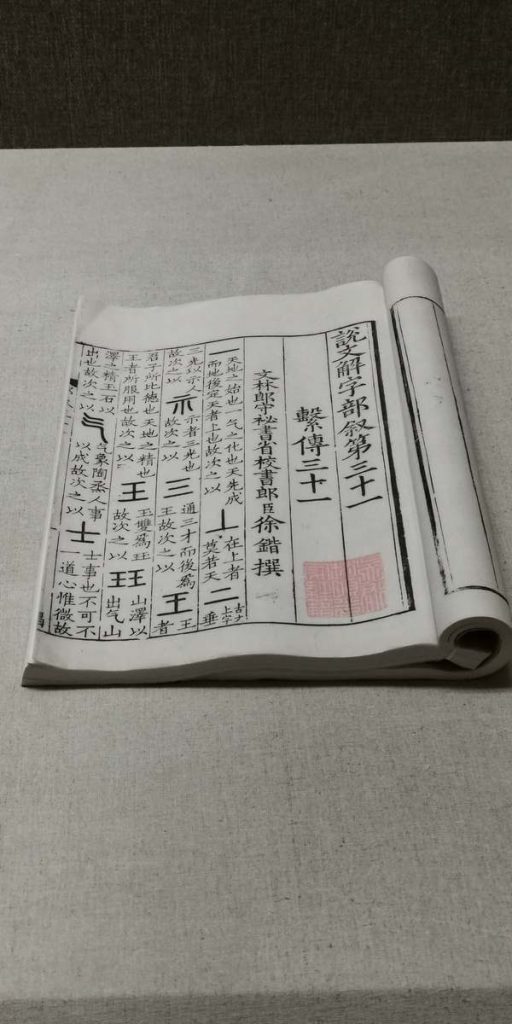 說文解字部敘第三十一
繫傳三十一
文林郎守祕書省校書郎臣徐鍇撰
一天地之始也一气之化也天先成
而地後定天者上也故次之以
丄在上者
莫若天
二古文
上字垂
三光以示人
故次之以
示示者三光也
故次之以
三通三才而後爲
王故次之以
王王
者
君子所比德也天地之精也
王者所服用也故次之以
王玉雙爲玨
故次之以
玨山澤以
出气山
澤之精玉石以
出也故次之以
气气象陶烝人事
以成故次之以
士士事也不可不
一道心惟微故